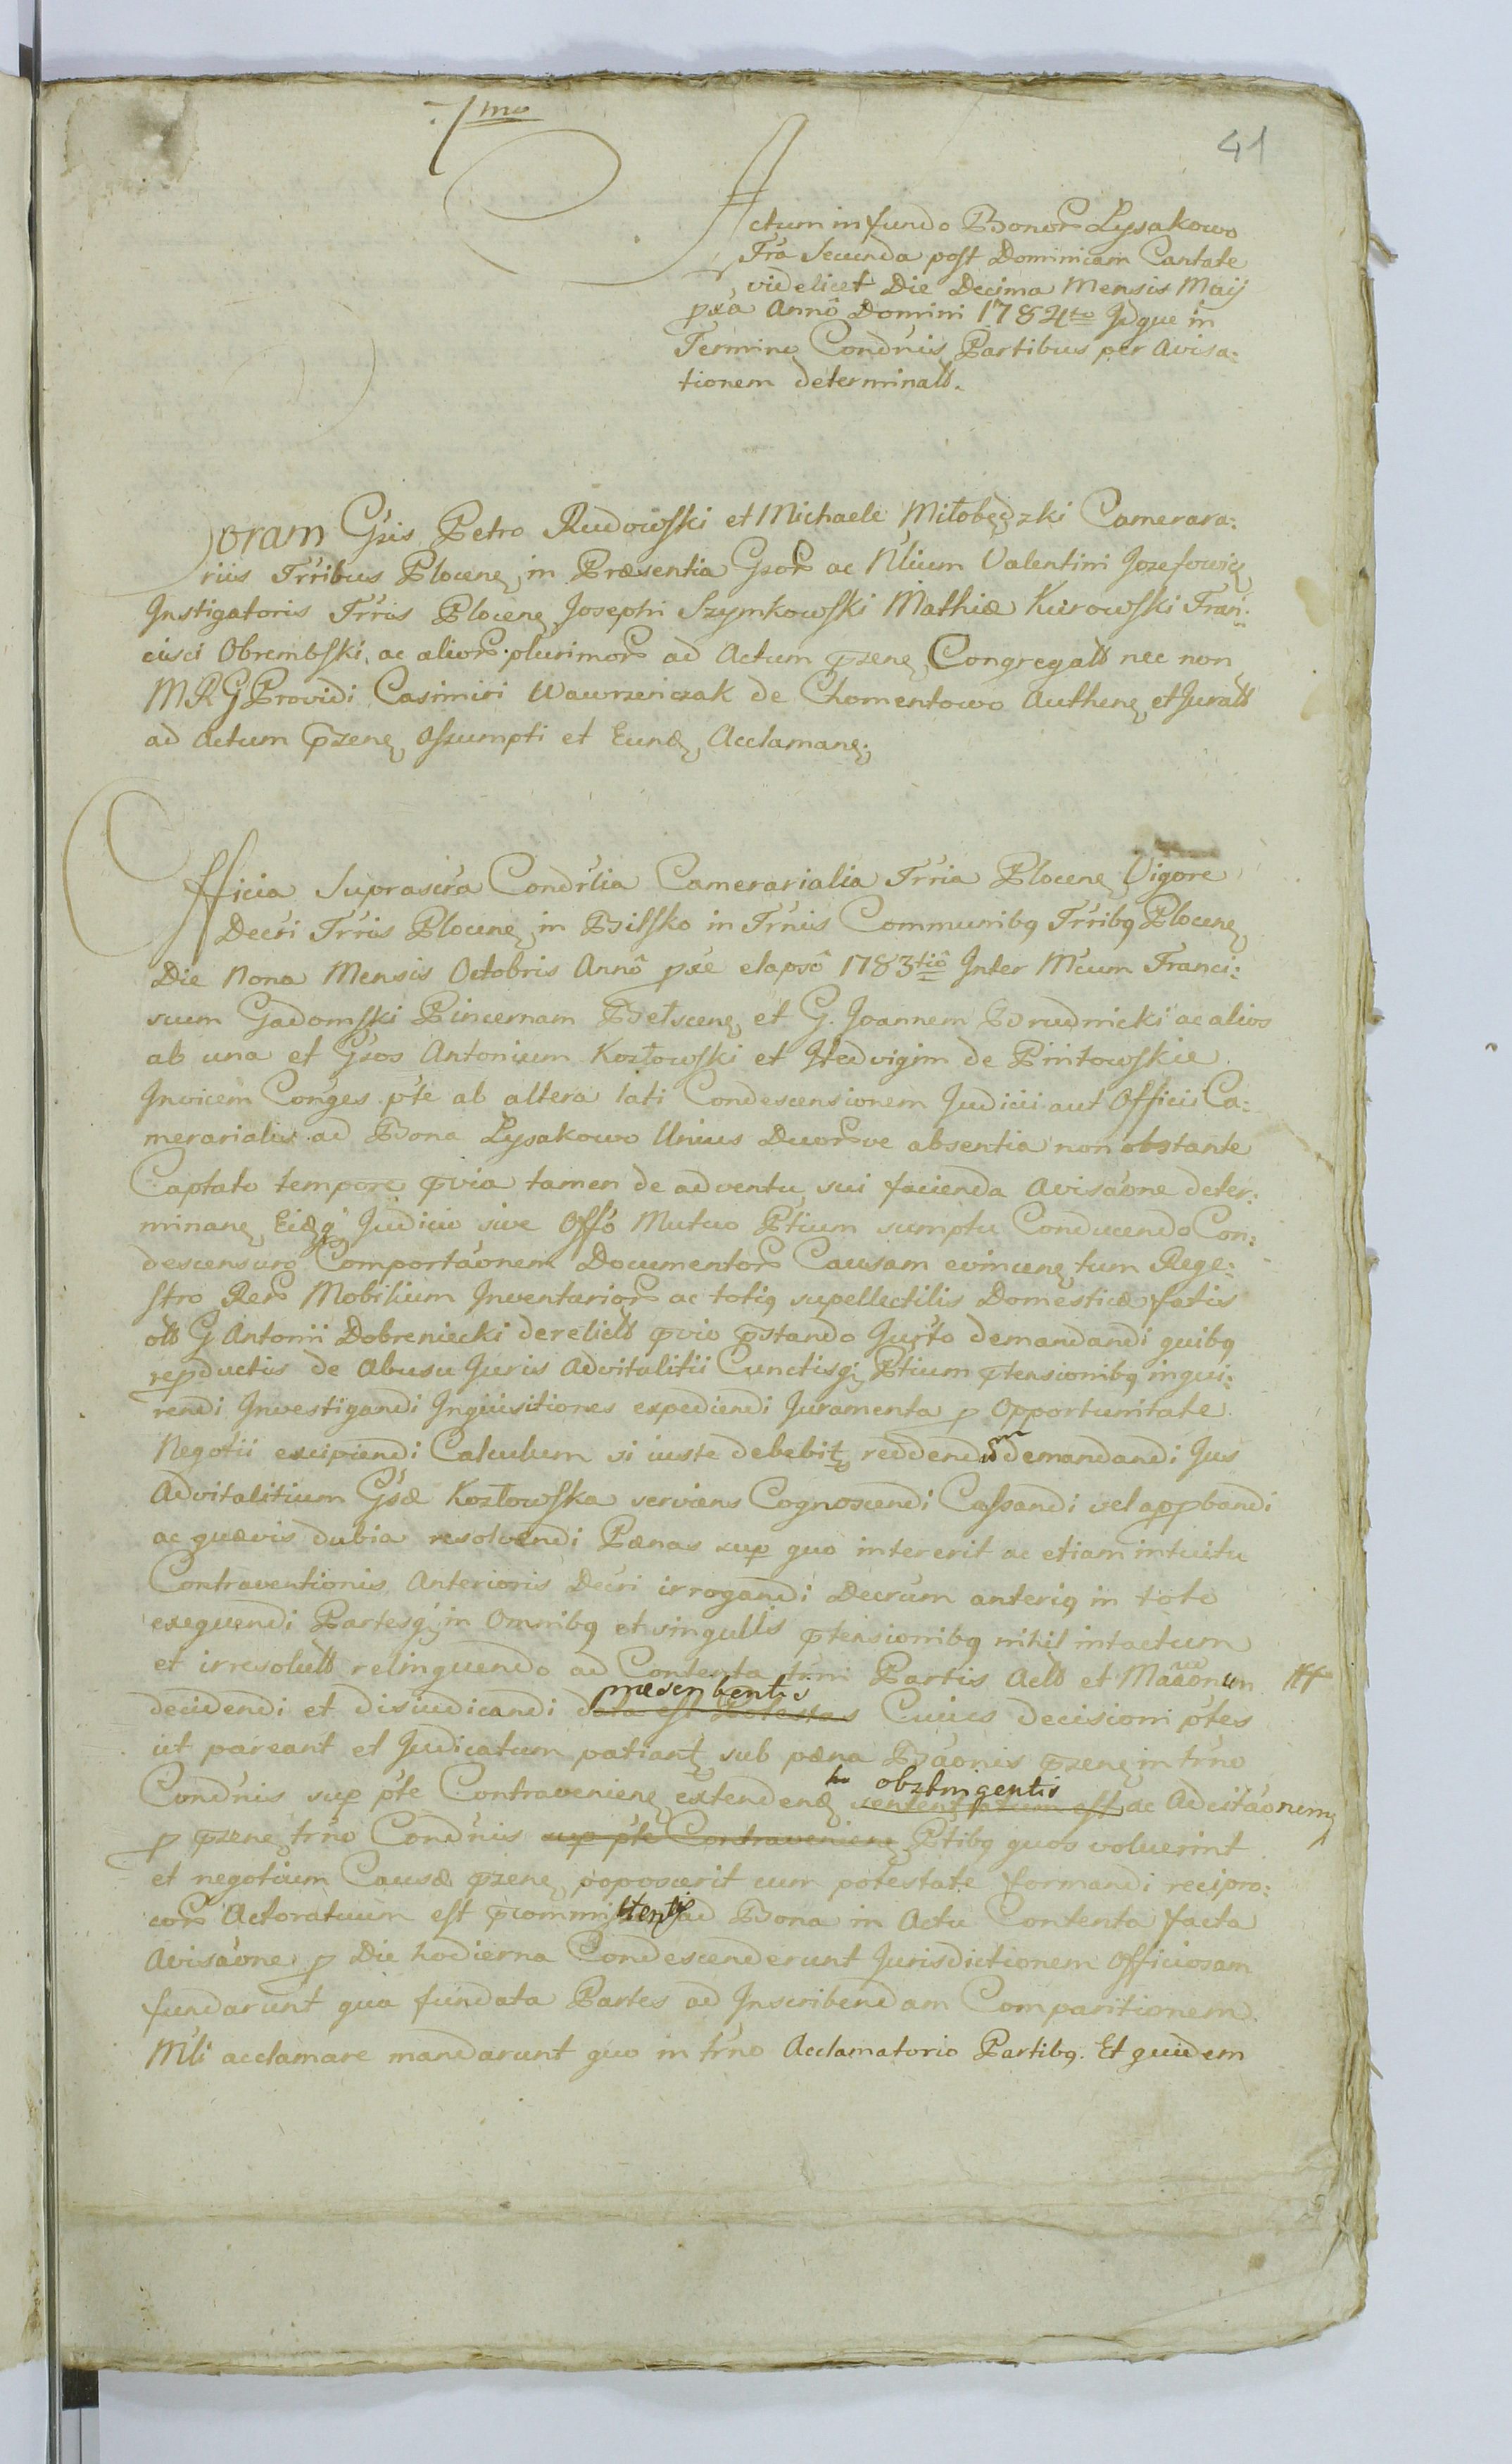 1mo
41
Actum in fundo Bonor Lysakowo
Fra Secunda post Dominicam Cantate
videlicet Die Decima Mensis Maij
pxa Annô Domini 1784to Idque in
Termino Condnis Partibus per Avisa:
tionem determinato.
Coram Gsis Petro Rudowski et Michaele Miłobędzki Camerara:
riis Trribus Plocen, in Præsentia Gsor ac Nlium Valentini Jozefowicz
Instigatoris Trris Plocen, Josephi Szymkowski Mathiæ Kurowski Fran:
cisci Obrembski, ac alior plurimor ad Actum pzen, Congregato nec non
MRG Providi Casimiri Wawrzenczak de Chomentowo Authen, et Jurato
ad Actum pzen, Assumpti et Eund, Acclaman,
Officia Suprascra Condrlia Camerarialia Trria Plocen, Vigore
Decri Trris Plocen, in Bilsko in Trnis Communibq Trribq Plocen,
Die Nona Mensis Octobris Annô pxe elapsô 1783tiô Inter Mcum Franci:
scum Gadomski Pincernam Bełscen, et G. Joannem Brudnicki ac alios
ab una et Gsos Antonium Kozłowski et Hedvigim de Pintowskie
Invicem Conges pte ab altera lati Condescensionem Judicii aut Officii Ca:
merarialis ad Bona Lysakowo Unius Duorve absentia non obstante
Captato tempore qvia tamen de adventu sui facienda Avisaone deter:
minan, Eidq Judicio sive Offo Mutuo Ptium sumptu Conducendo Con:
descensuro Comportaonem Documentor Causam evincen, tum Rege:
stro Rer Mobilium Inventarior ac totiq supellectilis Domesticæ fatis
olo G Antonii Dobreniecki derelicto qvio pstando Jurto demandandi quibq
repductis de Abusu Juris Advitalitii Cunctisq Ptium ptensionibq inqui:
rendi Investigandi Inquisitiones expediendi Juramenta p Opportunitate
Negotii excipiendi Calculum si iuste debebit, reddendum demandandi Jus
Advitalitium Gsæ Kozłowska serviens Cognoscendi Cassandi vel appbandi
ac quævis dubia resolvendi Pænas sup quo intererit ac etiam intuitu
Contraventionis Anterioris Decri irrogandi Decrum anteriq in toto
exequendi Partesq in Omnibq et singullis ptensionibq nihil intactum
et irresoluto relinquendo ad Contenta trni Partis Acto et Maaonum
decidendi et disiudicandi data est Potestas præscribentis Cuius decisioni ptes
ut pareant et Judicatum patiant, sub pæna Baonis pzen, in trno
Condnis sup pte Contravenien, extenden, obstringentis ac Adcitaonem
p pzen, trno Condnis sup pte Contravenien, Ptibq quos voluerint
et negotium Causæ pzen, poposcerit cum potestate formandi recipro:
cor Actoratuum est pcommittentis ad Bona in Actu Contenta facta
Avisaone p Die hodierna Condescenderunt Jurisdictionem Officiosam
fundarunt qua fundata Partes ad Inscribendam Comparitionem
Mli acclamare mandarunt quo in trno Acclamatorio Partibq. Et quidem